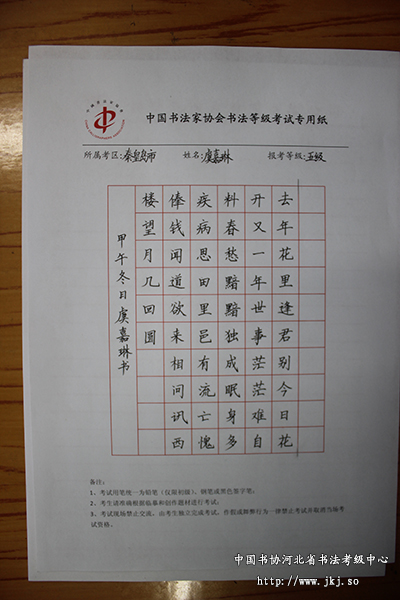 中国书法家协会书法等级考试专用纸
所属考区:秦皇岛市 姓名:虞嘉琳 报考等级:五级
去年花里逢君别今日花
开又一年世事茫茫难自
料春愁黯黯独成眠身多
疾病思田里邑有流亡愧
俸钱闻道欲来相问讯西
楼望月几回圆
甲午冬日虞嘉琳书
备注:
1、考试用笔统一为铅笔(仅限初级)、钢笔或黑色签字笔;
2、考生请准确根据临摹和创作题材进行考试;
3、考试现场禁止交流,由考生独立完成考试,作假或舞弊行为一律禁止考试并取消当场考
试资格。
中国书协河北省书法考级中心
http://www.jkj.so